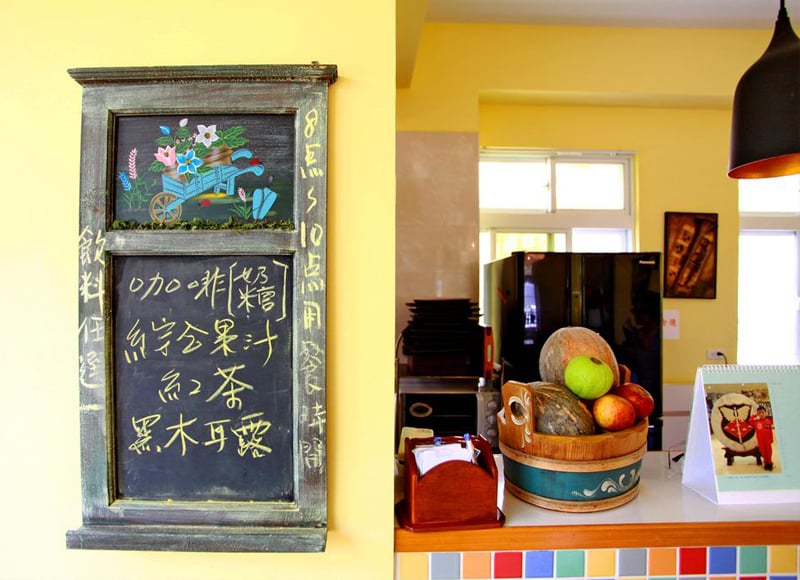 飲料任選
8点~10点用餐時間
咖啡[奶糖]
綜合果汁
紅茶
黑木耳露